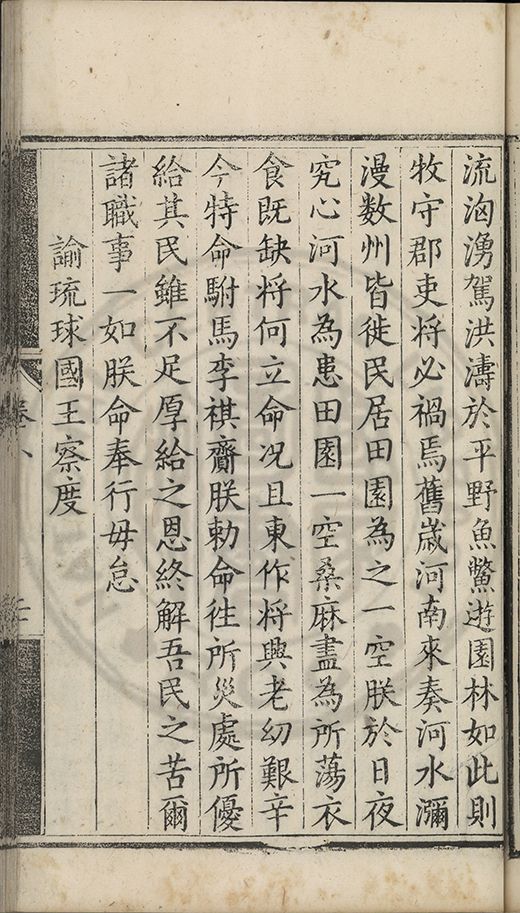 流洶湧駕洪濤於平野魚鱉遊園林如此則
牧守郡吏將必禍焉舊歲河南來奏河水瀰
漫数州皆徙民居田園為之一空朕於日夜
究心河水為患田園一空桑麻盡為所蕩衣
食既缺将何立命况且東作将興老幼艱辛
今特命駙馬李祺齎朕勅命徃所災處所優
給其民雖不足厚給之恩終解吾民之苦爾
諸職事一如朕命奉行毋怠
諭琉球國王察度
卷八